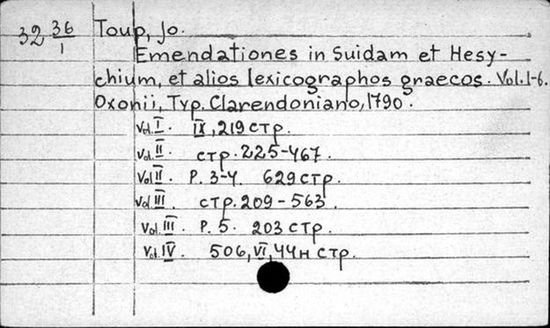 32 36/1 Toup, Jo.
Emendationes in Suidam et Hesy-
chium, et alios lexicographos graecos. Vol. 1-6.
Oxonii, Typ. Clarendoniano, 1790.
Vol. I. IX, 219 стр.
Vol. II стр. 225-467.
Vol II. P. 3-4. 629 стр.
Vol. III. стр. 209-563.
Vol. III. P. 5. 203 стр.
Vol. IV. 506, VI, 44н стр.